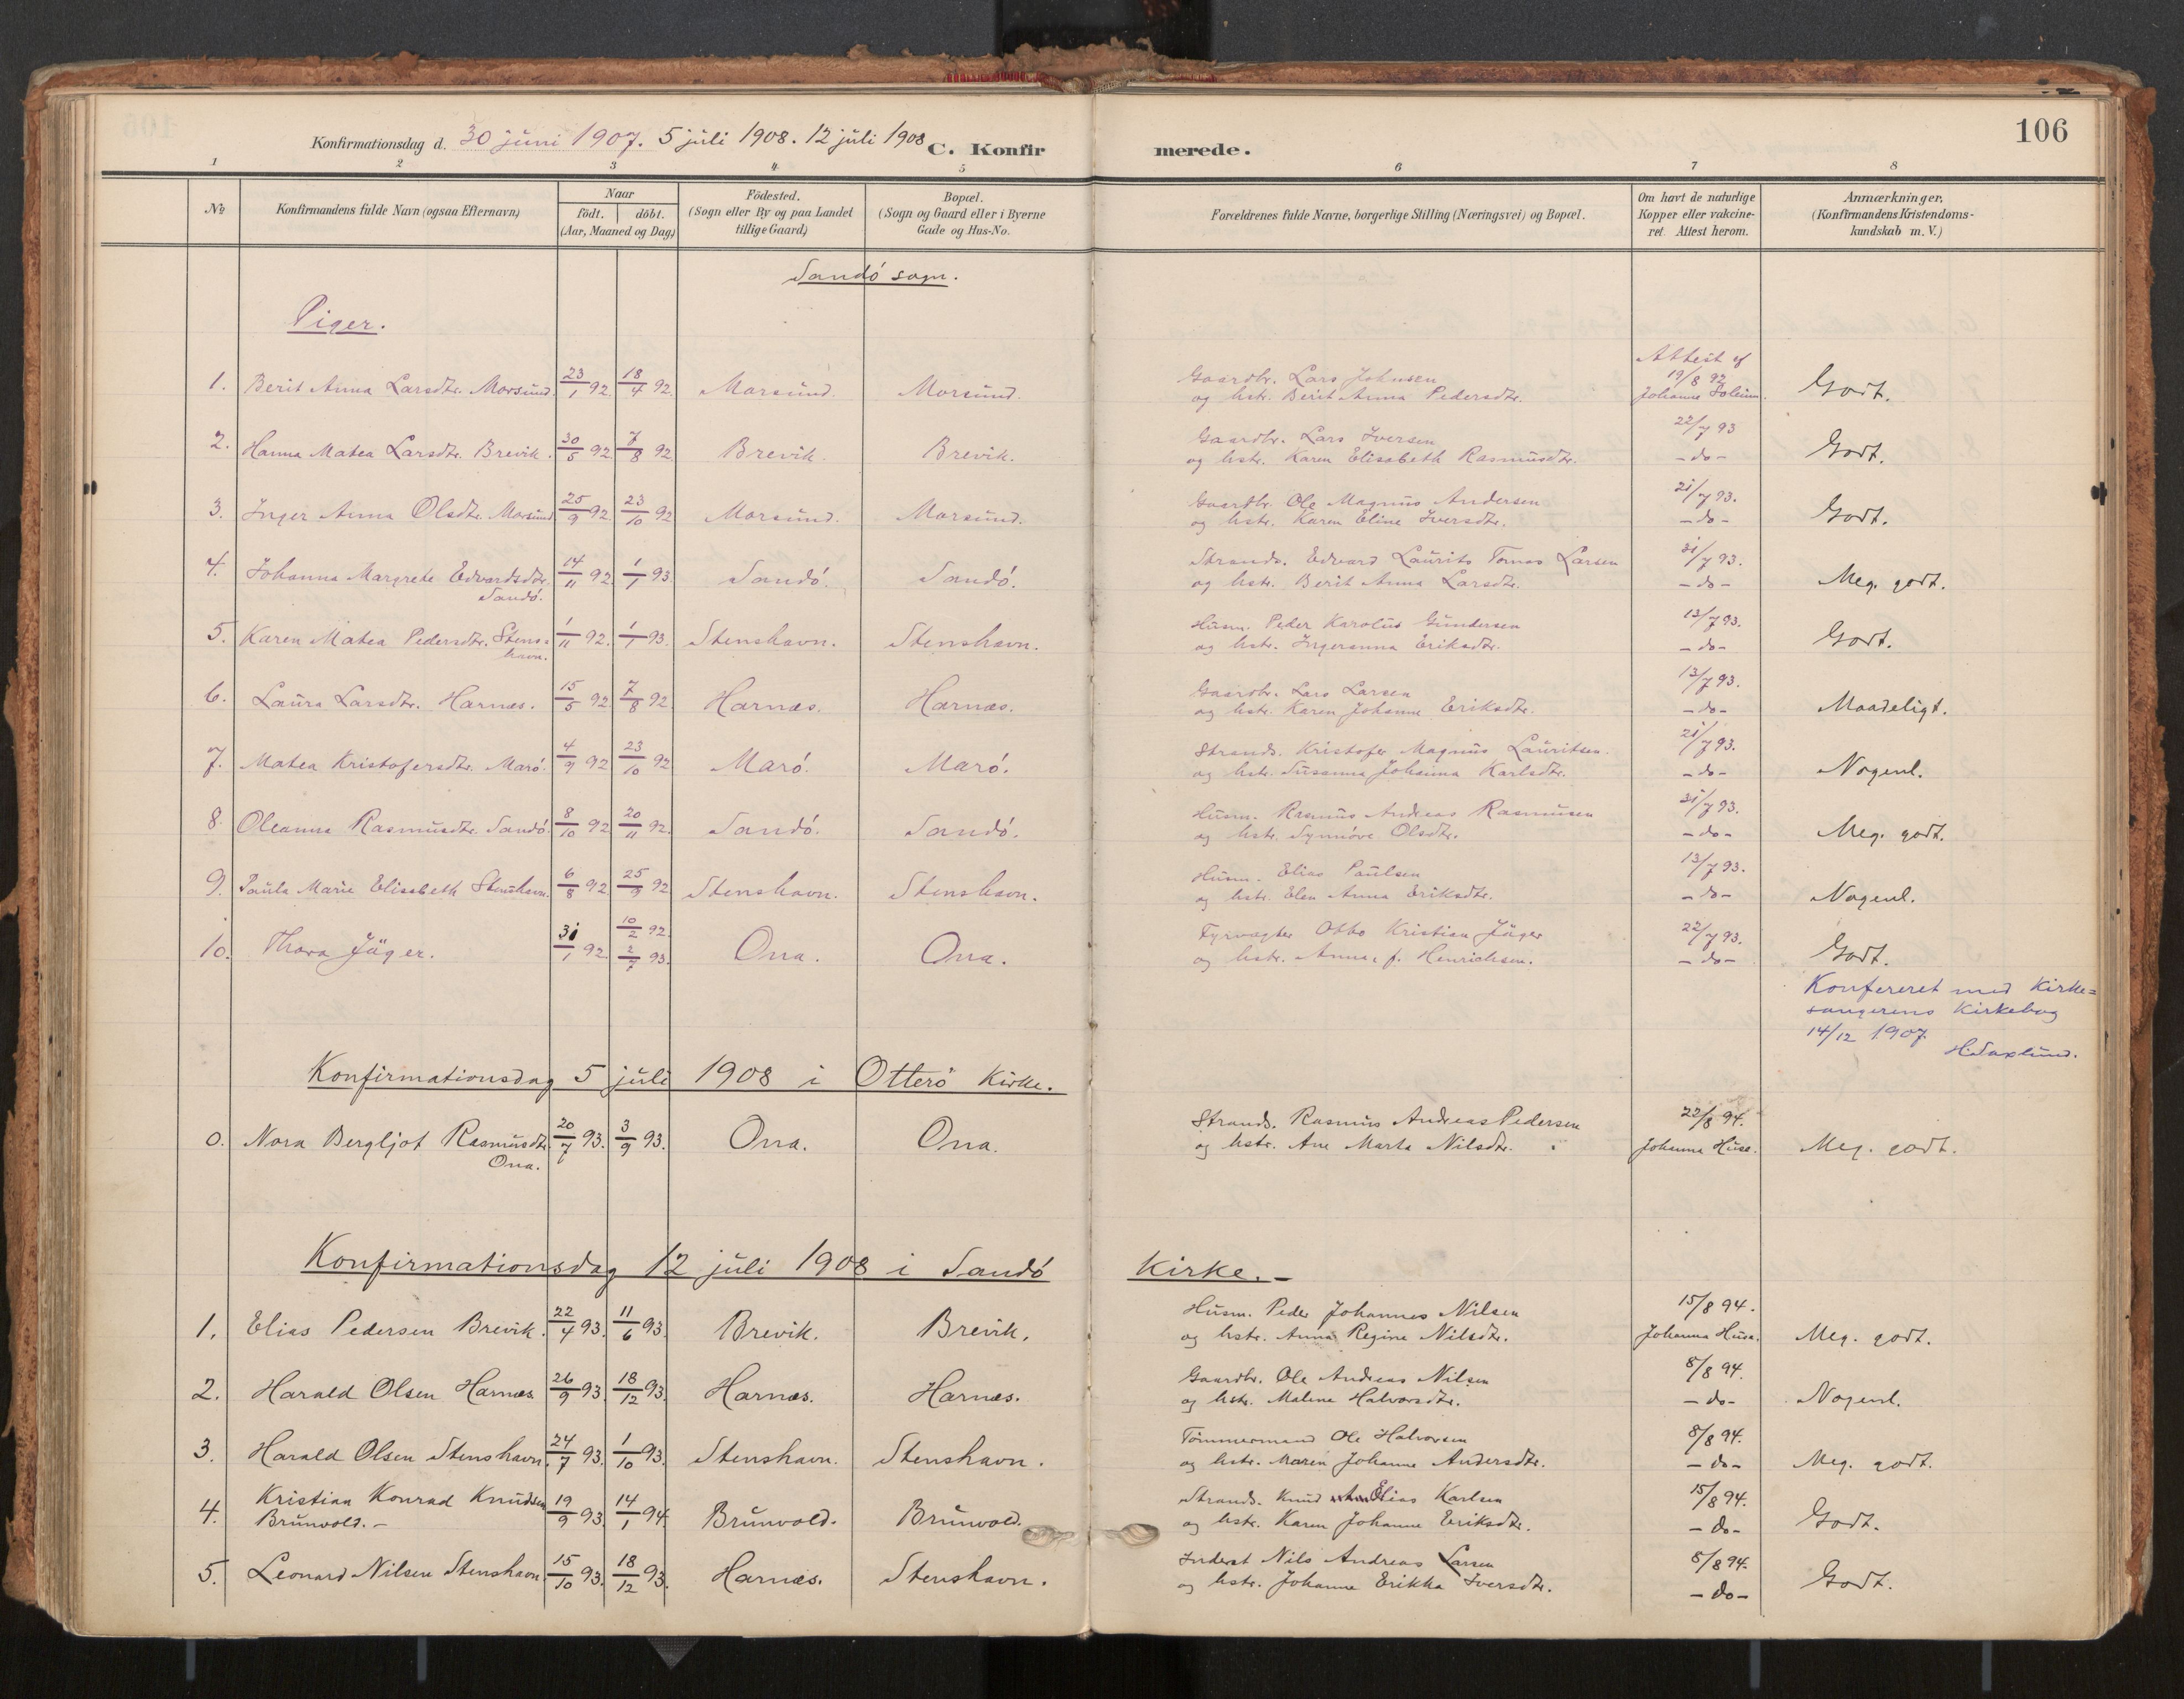 106
Konfirmationsdag d. 30 juni 1907. 5 juli 1908. 12 juli 1908 C. Konfirmerede.
1 2 3 4 5 6 7 8
№ Konfirmandens fulde Navn (ogsaa Efternavn) Naar födt. döbt. (Aar, Maaned og Dag) Födested. (Sogn eller By og paa Landet tillige Gaard) Bopæl. (Sogn og Gaard eller i Byerne Gade og Hus-No. Forældrenes fulde Navne, borgerlige Stilling (Næringsvei) og Bopæl. Om havt de naturlige Kopper eller vakcineret. Attest herom. Anmærkninger. (Konfirmandens Kristendomskundskab m. V.)
Sandó sogn.
Piger.
1. Berit Anna Larsdtr. Morsund. 23/1 92. 18/4 92. Morsund. Morsund. Gaardbr. Lars Johnsen Attest af 19/8 92
og hstr. Berit Anna Pedersdtr. Johanne Solem. Godt.
2. Hanna Matea Larsdtr. Brevik. 30/5 92 7/8 92. Brevik. Brevik. Gaardbr. Lars Iversen 22/7 93
og hstr. Karen Elisabeth Rasmusdtr. - do - Godt.
3. Inger Anna Olsdtr. Morsund 25/9 92. 23/10 92 Morsund. Morsund. Gaardbr. Ole Magnus Andersen 21/7 93.
og hstr. Karen Eline Iversdtr. - do - Godt.
4. Johanna Margrete Edvardsdtr. 14/11 92 1/1 93. Sandó. Sandó. Strands. Edvard Laurits Tomas Larsen 31/7 93.
Sandó. og hstr. Berit Anna Larsdtr. - do - Meg. godt.
5. Karen Matea Pedersdtr. Stens= 1/11 92. 1/1 93. Stenshavn. Stenshavn. Husm. Peder Karolus Gundersen 13/7 93.
havn. og hstr. Ingeranna Eriksdtr. - do - Godt.
6. Laura Larsdtr. Harnæs. 15/5 92. 7/8 92. Harnæs. Harnæs. Gaardbr. Lars Larsen 13/7 93.
og hstr. Karen Johanne Eriksdtr. - do - Maadeligt.
7. Matea Kristofersdtr. Maró. 4/9 92 23/10 92 Maró. Maró. Strands. Kristofer Magnus Lauritsen. 21/7 93.
og hstr. Susanna Johanna Karlsdtr. - do - Nogenl.
8. Oleanna Rasmusdtr. Sandó. 8/10 92 20/11 92. Sandó. Sandó. Husm. Rasmus Andreas Rasmusen 31/7 93.
og hstr. Synnóve Olsdtr. - do - Meg. godt.
9. Paula Marie Elisabeth Stenshavn. 6/8 92 25/9 92 Stenshavn. Stenshavn. Husm. Elias Paulsen 13/7 93.
og hstr. Elen Anna Eriksdtr. - do - Nogenl.
10. Thora Jäger. 31/1 92 10/2 92. 2/7 93. Ona. Ona. Fyrvogter Otto Kristian Jäger 22/7 93.
og hstr. Anna, f. Henrichsen. - do - Godt.
Konfereret med Kirke=
sangerens Kirkebog
14/12 1907.
H. Saxlund.
Konfirmationsdag 5 juli 1908 i Otteró Kirke.
0. Nora Bergljot Rasmusdtr. 20/7 93. 3/9 93. Ona. Ona. Strands. Rasmus Andreas Pedersen 22/8 94.
Ona. og hstr. Ane Marta Nilsdtr. Johanna Huse. Meg. godt.
Konfirmationsdag 12 juli 1908 i Sandó Kirke. -
1. Elias Pedersen Brevik. 22/4 93. 11/6 93. Brevik. Brevik. Husm. Peder Johannes Nilsen 15/8 94.
og hstr. Anna Regine Nilsdtr. Johanna Huse. Meg. godt.
2. Harald Olsen Harnæs 26/9 93. 18/12 93. Harnæs. Harnæs. Gaardbr. Ole Andreas Nilsen 8/8 94.
og hstr. Maline Halvorsdtr. - do - Nogenl.
3. Harald Olsen Stenshavn 24/7 93. 1/10 93. Stenshavn. Stenshavn. Tómmermand Ole Halvorsen 8/8 94.
og hstr. Maren Johanne Andersdtr. - do - Meg. godt.
4. Kristian Konrad Knudsen 19/9 93. 14/1 94. Brunvold. Brunvold. Strands. Knud Elias Karlsen 15/8 94.
Brunvold. - og hstr. Karen Johanne Eriksdtr. - do - Godt.
5. Leonard Nilsen Stenshavn. 15/10 93. 18/12 93. Harnæs. Stenshavn. Inderst Nils Andreas Larsen 8/8 94.
og hstr. Johanne Erikka Iversdtr. - do - Godt.